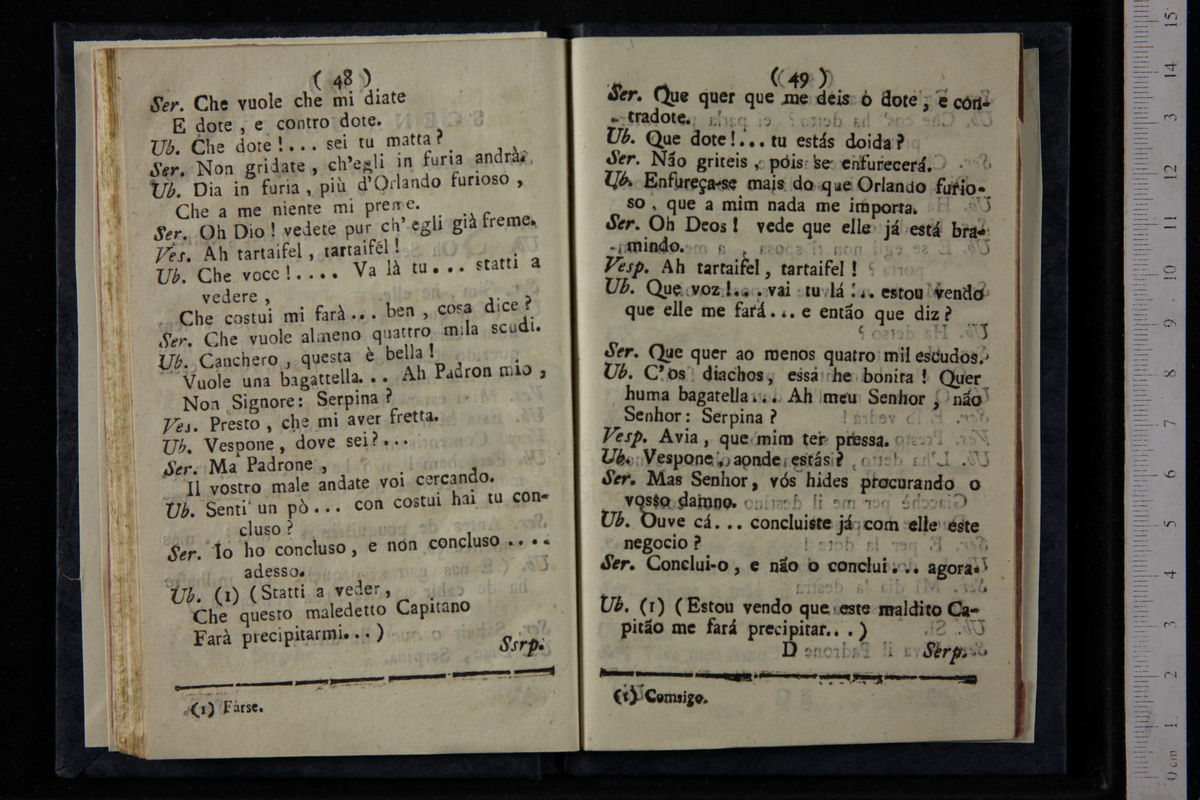 ( 48 )
Ser. Che vuole che mi diate
E dote , e contro dote.
Ub. Che dote !... sei tu matta ?
Ser. Non gridate , ch'egli in furia andrà.
Ub. Dia in furia , più d'Orlando furioso ,
Che a me niente mi preme.
Ser. Oh Dio ! vedete pur ch' egli già freme.
Ves. Ah tartaifel , tartaifel !
Ub. Che voce !.... Va là tu... statti a
vedere ,
Che costui mi farà... ben , cosa dice ?
Ser. Che vuole almeno quattro mila scudi.
Ub. Canchero , questa è bella !
Vuole una bagattella... Ah Padron mio ,
Non Signore : Serpina ?
Ves. Presto , che mi aver fretta.
Ub. Vespone , dove sei ?...
Ser. Ma Padrone ,
Il vostro male andate voi cercando.
Ub. Senti un pò... con costui hai tu con-
cluso ?
Ser. Io ho concluso , e non concluso ....
adesso.
Ub. (1) (Statti a veder ,
Che questo maledetto Capitano
Farà precipitarmi...)
Ssrp.
(1) Farse.
( 49 )
Ser. Que quer que me deis o dote , e con-
tradote.
Ub. Que dote !... tu estás doida ?
Ser. Não griteis , pois se enfurecerá.
Ub. Enfureça-se mais do que Orlando furio-
so , que a mim nada me importa.
Ser. Oh Deos ! vede que elle já está bra-
mindo.
Vesp. Ah tartaifel , tartaifel !
Ub. Que voz !... vai tu lá !.. estou vendo
que elle me fará... e então que diz ?
Ser. Que quer ao menos quatro mil escudos.
Ub. C'os diachos , essa he bonita ! Quer
huma bagatella... Ah meu Senhor , não
Senhor : Serpina ?
Vesp. Avia , que mim ter pressa.
Ub. Vespone , aonde estás ?
Ser. Mas Senhor , vós hides procurando o
vosso damno.
Ub. Ouve cá... concluiste já com elle este
negocio ?
Ser. Conclui-o , e não o conclui... agora.
Ub. (1) (Estou vendo que este maldito Ca-
pitão me fará precipitar...)
D Serp.
(1) Comsigo.